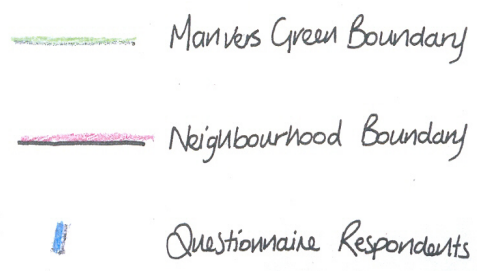 Manvers Green Boundary
Neighbourhood Boundary
Questionnaire Respondents